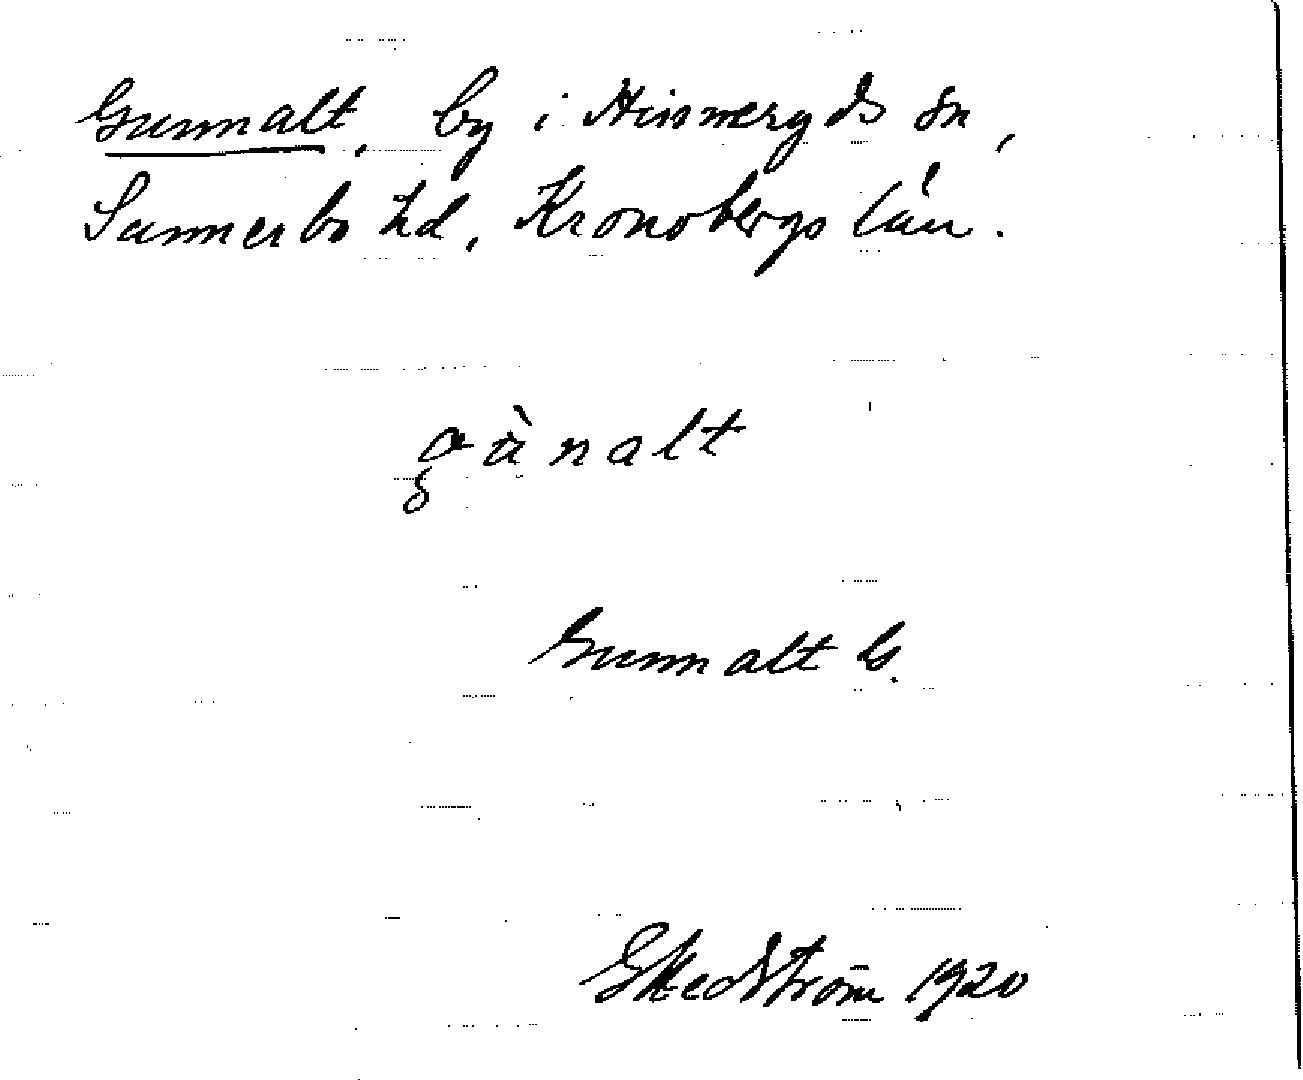 Gunnalt, by i Hinneryds sn,
Sunnerbo hd, Kronobergs län.
gùnalt
Gunnalt G.
GHedström 1920